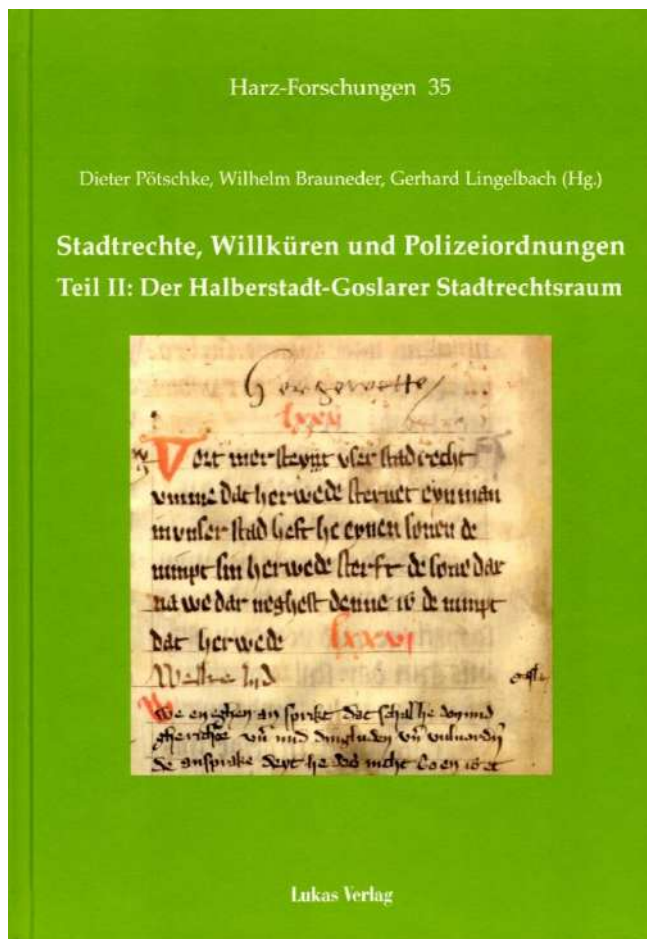 Harz-Forschungen 35
Dieter Pötschke, Wilhelm Brauneder, Gerhard Lingelbach (Hg.)
Stadtrechte, Willküren und Polizeiordnungen
Teil II: Der Halberstadt-Goslarer Stadtrechtsraum
lxxii
mer stadrecht
vmme dat herwede steruet eyn man
in vnser stad heft he eynen sonen de
nimpt sin herwede sterft de sone dar
na we dar neghest denne is de nimpt
dat herwede lxxvi
We en eghen an sprikt dat schal he don
de ansprake he des nicht
Lukas Verlag